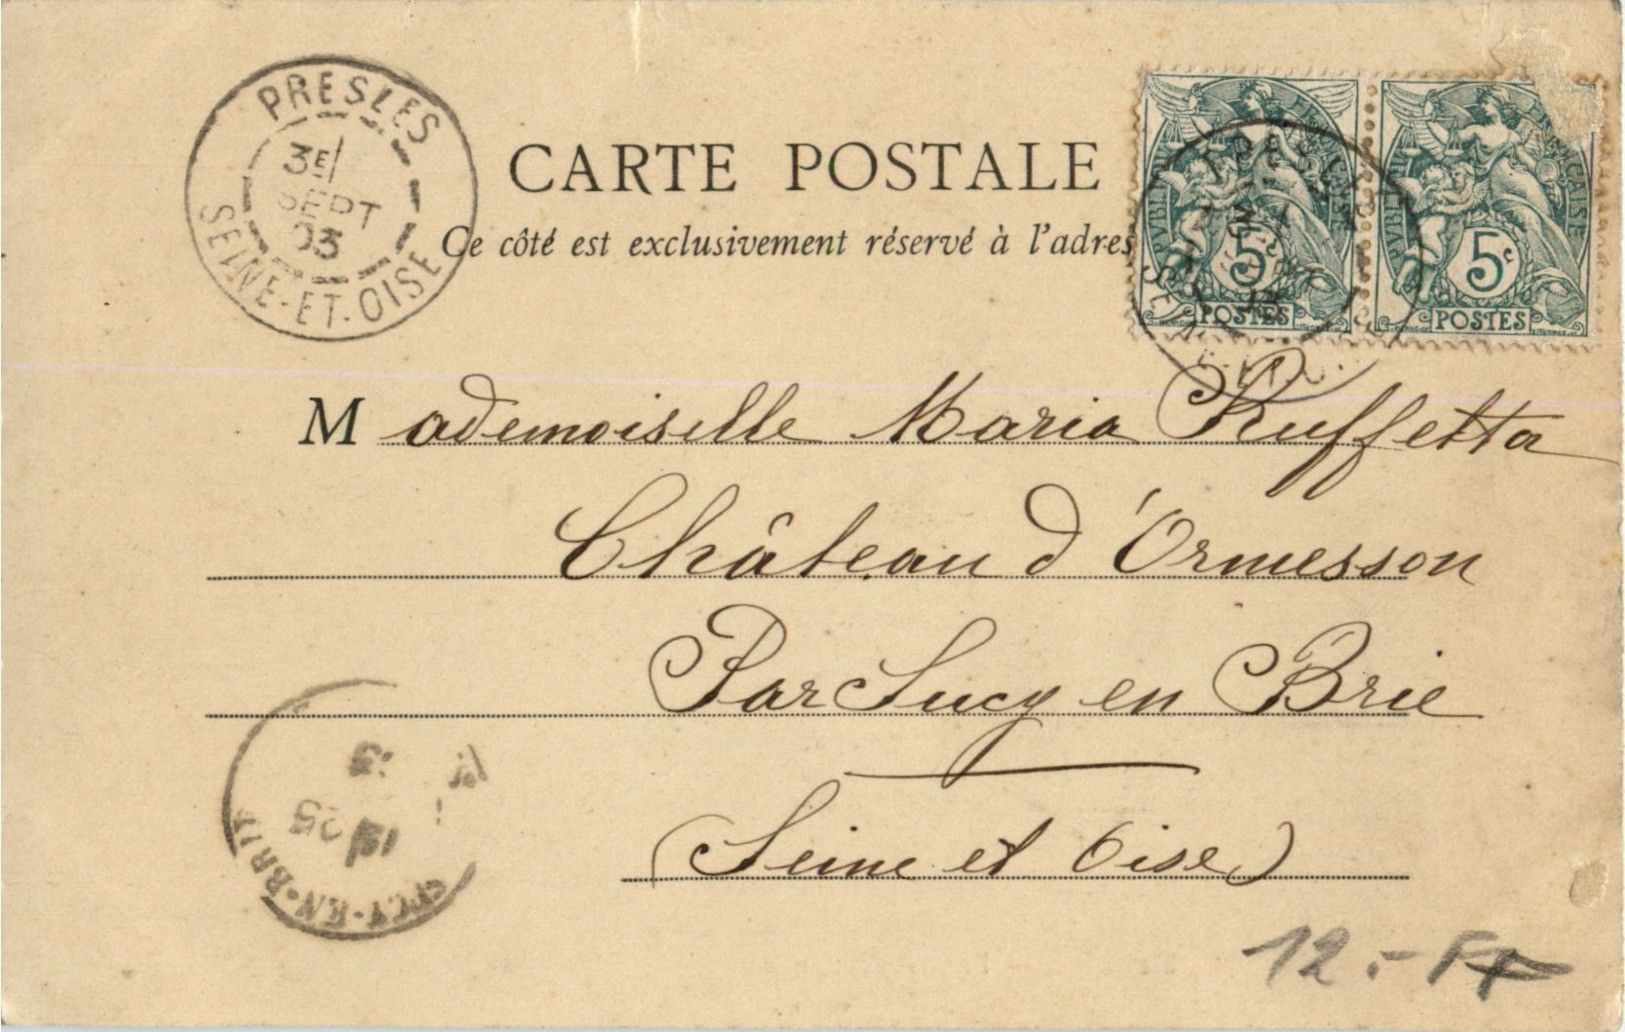 PRESLES
3E
SEPT
03
SEINE-ET-OISE
CARTE POSTALE
Ce côté est exclusivement réservé à l'adres
RÉPUBLIQUE FRANÇAISE
5c
POSTES
5c
POSTES
Mademoiselle Maria Ruffetta
Château d'Ormesson
Par Sucy en Brie
(Seine et Oise)
25
SUCY-EN-BRIE
12.- FF